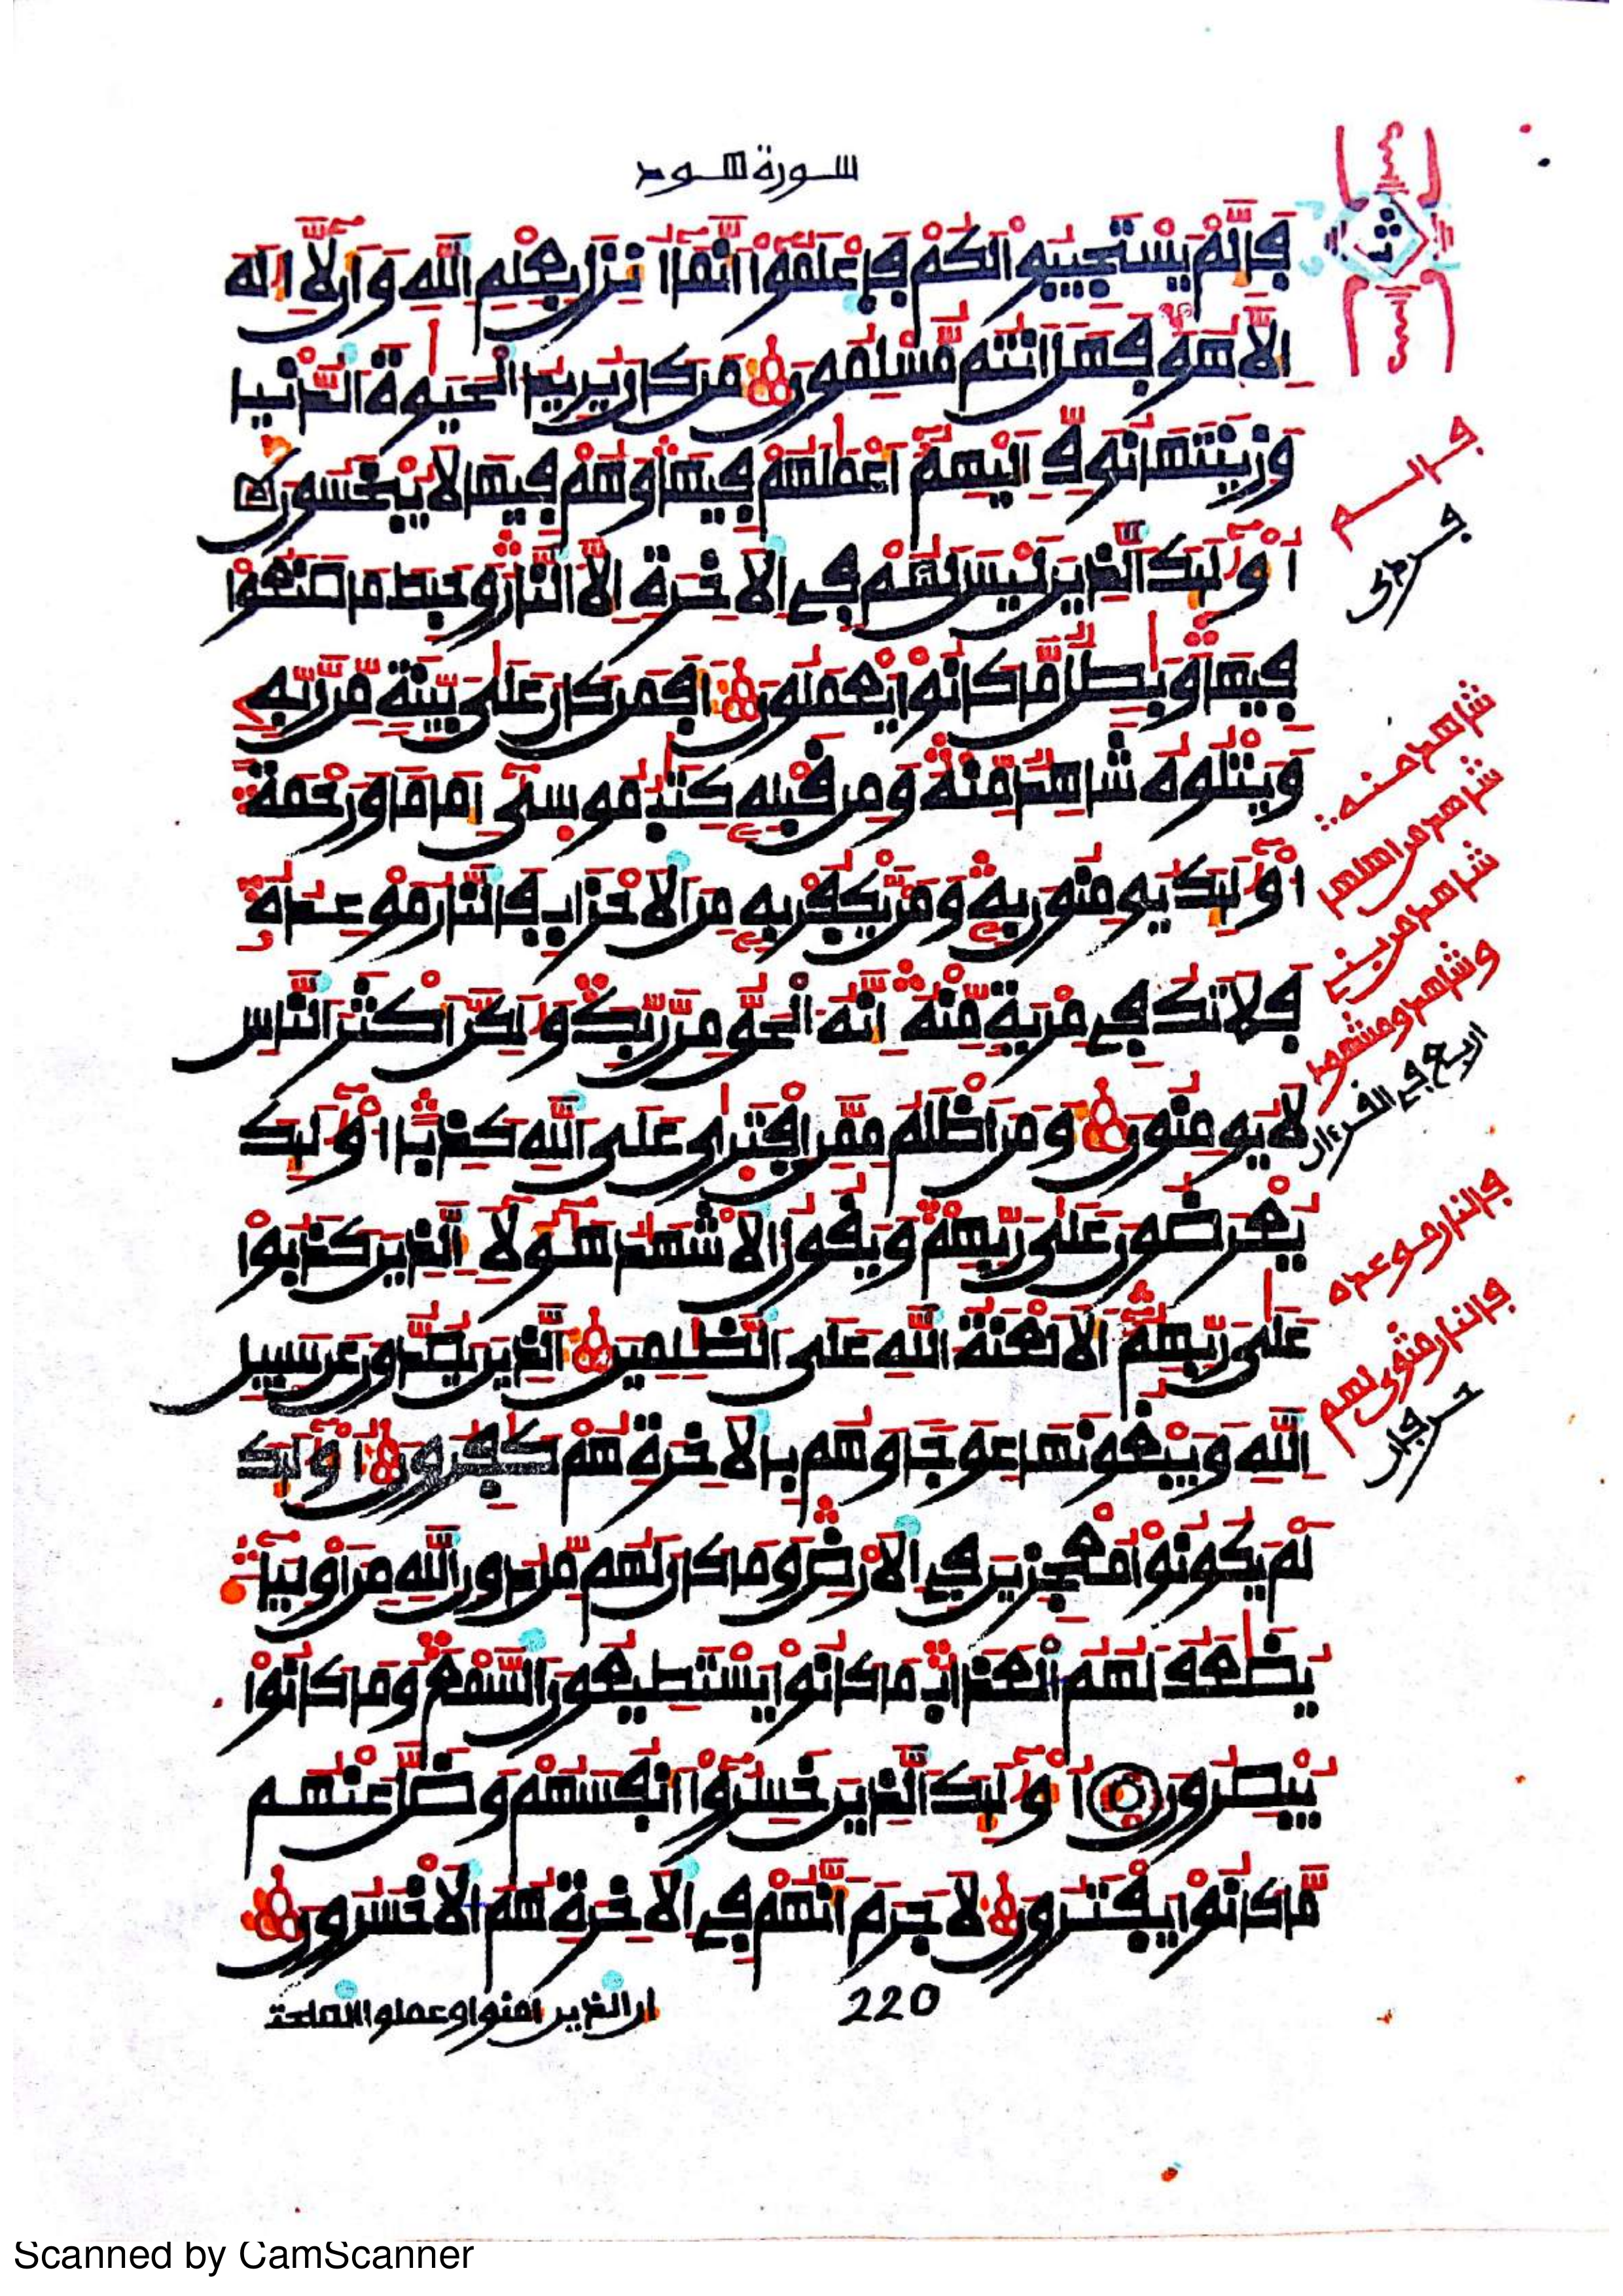 سورة هود
فَإِلَّمْ يَسْتَجِيبُوا لَكُمْ فَاعْلَمُوا أَنَّمَا أُنزِلَ بِعِلْمِ اللَّهِ وَأَن لَّا إِلَهَ
إِلَّا هُوَ فَهَلْ أَنتُم مُّسْلِمُونَ مَن كَانَ يُرِيدُ الْحَيَوةَ الدُّنْيَا
وَزِينَتَهَا نُوَفِّ إِلَيْهِمْ أَعْمَلَهُمْ فِيهَا وَهُمْ فِيهَا لَا يُبْخَسُونَ
أُوْلَئِكَ الَّذِينَ لَيْسَ لَهُمْ فِي الْآخِرَةِ إِلَّا النَّارُ وَحَبِطَ مَا صَنَعُوا
فِيهَا وَبَطِلٌ مَّا كَانُوا يَعْمَلُونَ أَفَمَن كَانَ عَلَى بَيِّنَةٍ مِّن رَّبِّهِ
وَيَتْلُوهُ شَاهِدٌ مِّنْهُ وَمِن قَبْلِهِ كِتَبُ مُوسَى إِمَامًا وَرَحْمَةً
أُوْلَئِكَ يُومِنُونَ بِهِ وَمَن يَكْفُرْ بِهِ مِنَ الْأَحْزَابِ فَالنَّارُ مَوْعِدُهُ
فَلَا تَكُ فِي مِرْيَةٍ مِّنْهُ إِنَّهُ الْحَقُّ مِن رَّبِّكَ وَلَكِنَّ أَكْثَرَ النَّاسِ
لَا يُومِنُونَ وَمَنْ أَظْلَمُ مِمَّنِ افْتَرَى عَلَى اللَّهِ كَذِبًا أُوْلَئِكَ
يُعْرَضُونَ عَلَى رَبِّهِمْ وَيَقُولُ الْأَشْهَدُ هَؤُلَاءِ الَّذِينَ كَذَبُوا
عَلَى رَبِّهِمْ أَلَا لَعْنَةُ اللَّهِ عَلَى الظَّلِمِينَ الَّذِينَ يَصُدُّونَ عَن سَبِيلِ
اللَّهِ وَيَبْغُونَهَا عِوَجًا وَهُم بِالْآخِرَةِ هُمْ كَفِرُونَ أُوْلَئِكَ
لَمْ يَكُونُوا مُعْجِزِينَ فِي الْأَرْضِ وَمَا كَانَ لَهُم مِّن دُونِ اللَّهِ مِنْ أَوْلِيَاءَ
يُضَعَفُ لَهُمُ الْعَذَابُ مَا كَانُوا يَسْتَطِيعُونَ السَّمْعَ وَمَا كَانُوا
يُبْصِرُونَ أُوْلَئِكَ الَّذِينَ خَسِرُوا أَنفُسَهُمْ وَضَلَّ عَنْهُم
مَّا كَانُوا يَفْتَرُونَ لَا جَرَمَ أَنَّهُمْ فِي الْآخِرَةِ هُمُ الْأَخْسَرُونَ
220
ان الذين امنوا وعملوا الصلحت
ث
فإلم
شاهد منه
شاهد من اهلها
شاهد من بني
وشاهد ومشهود
اربع في القرءان
فالنار موعده
فالنار مثوى لهم
حرفان
Scanned by CamScanner